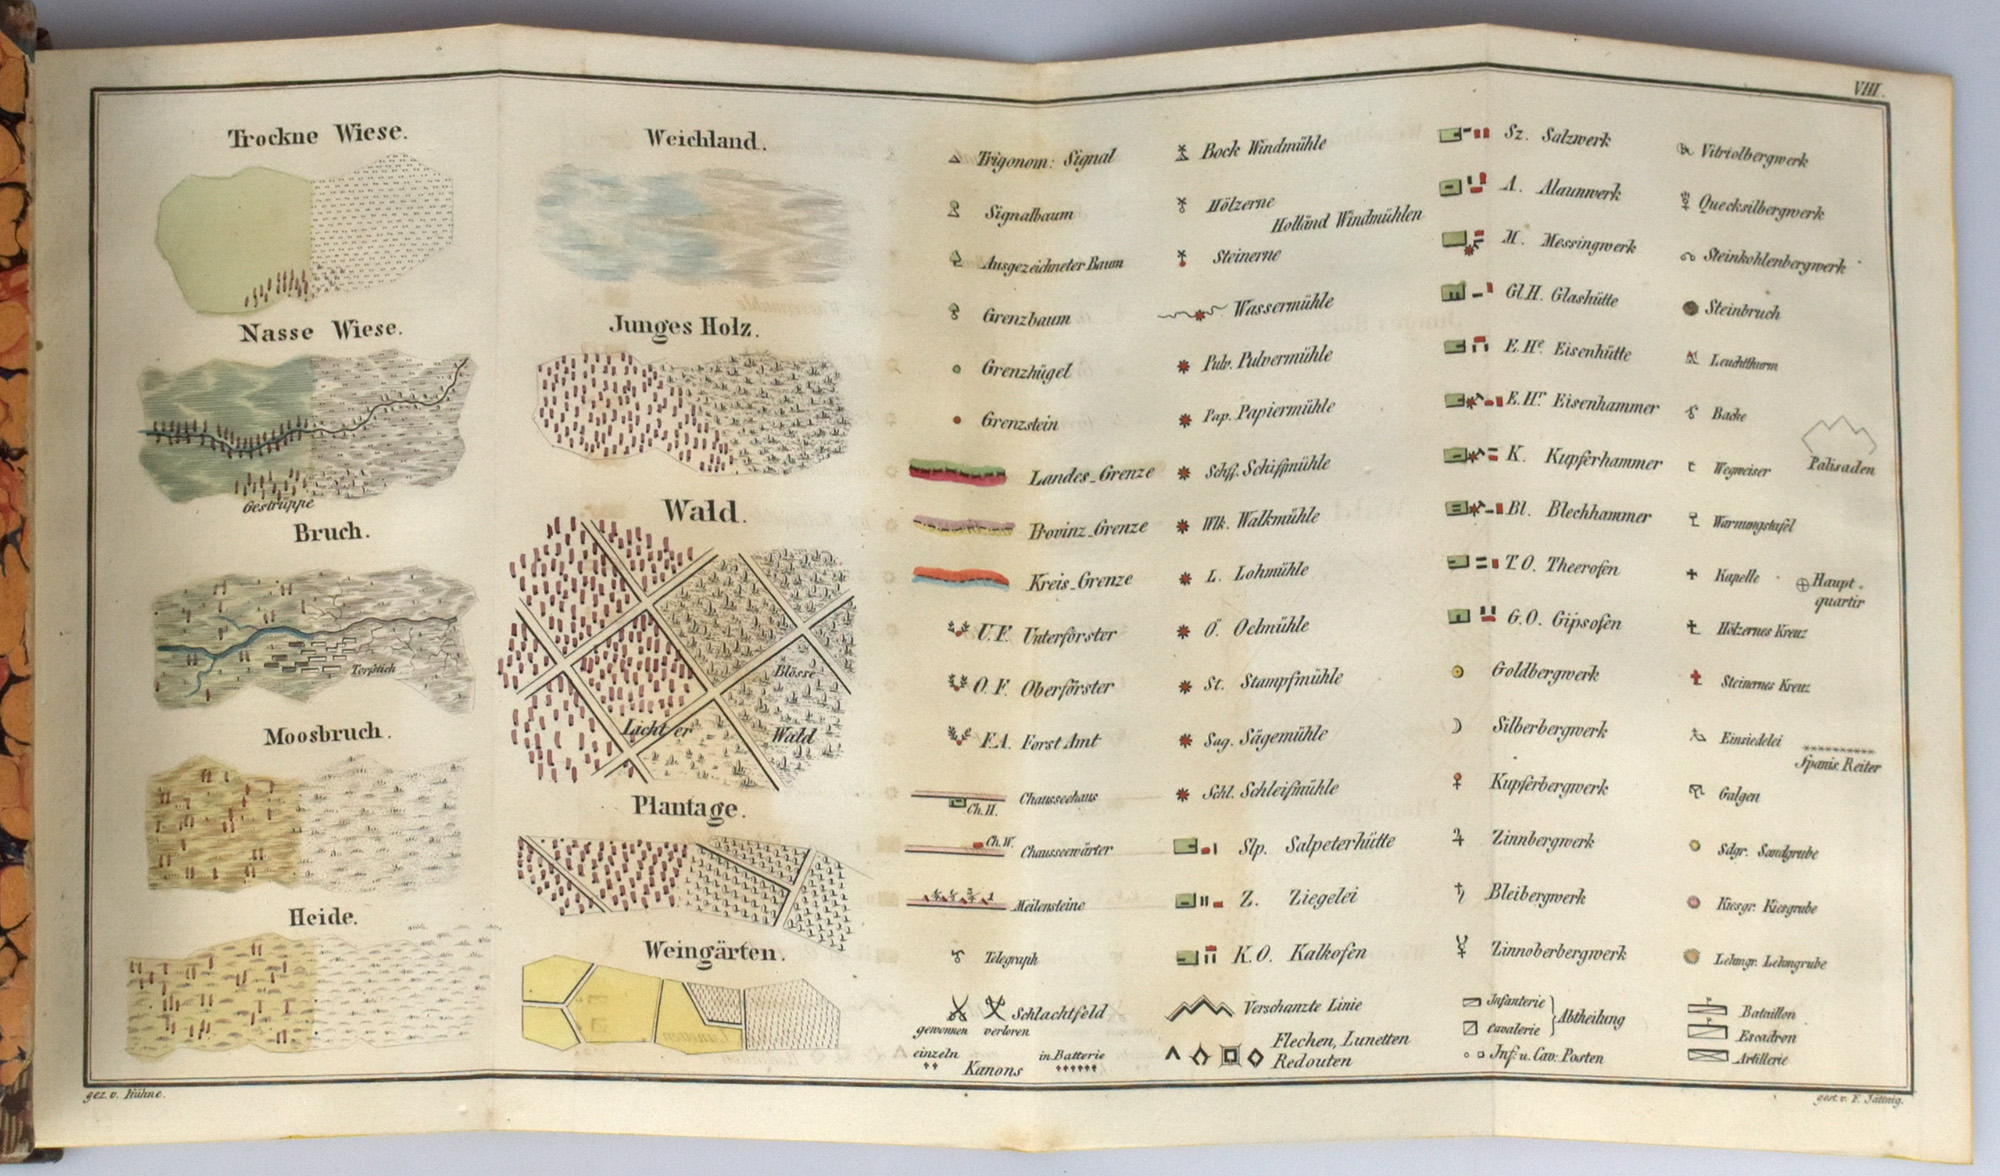 VIII.
Trockne Wiese.
Nasse Wiese.
Gestrüppe
Bruch.
Torfstich
Moosbruch.
Heide.
Weichland.
Junges Holz.
Wald.
Blösse
Lichter Wald
Plantage.
Weingärten.
Trigonom: Signal
Signalbaum
Ausgezeichneter Baum
Grenzbaum
Grenzhügel
Grenzstein
Landes_Grenze
Provinz_Grenze
Kreis_Grenze
U.F. Unterförster
O.F. Oberförster
F.A. Forst Amt
Ch.H. Chausseehaus
Ch.W. Chausseewärter
Meilensteine
Telegraph
Schlachtfeld
gewonnen verloren
einzeln in Batterie
Kanons
Bock Windmühle
Hölzerne
Holländ Windmühlen
Steinerne
Wassermühle
Pulv. Pulvermühle
Pap. Papiermühle
Schff. Schifsmühle
Wlk. Walkmühle
L. Lohmühle
Ö. Oelmühle
St. Stampfmühle
Sag. Sägemühle
Schl. Schleifmühle
Slp. Salpeterhütte
Z. Ziegelei
K.O. Kalkofen
Verschanzte Linie
Flechen, Lunetten
Redouten
Sz. Salzwerk
A. Alaunwerk
M. Messingwerk
Gl.H. Glashütte
E.He. Eisenhütte
E.Hr. Eisenhammer
K. Kupferhammer
Bl. Blechhammer
T.O. Theerofen
G.O. Gipsofen
Goldbergwerk
Silberbergwerk
Kupferbergwerk
Zinnbergwerk
Bleibergwerk
Zinnoberbergwerk
Infanterie
Cavalerie
Abtheilung
Inf: u. Cav: Posten
Vitriolbergwerk
Quecksilbergwerk
Steinkohlenbergwerk
Steinbruch
Leuchtthurm
Backe
Wegweiser
Warnungstafel
Kapelle
Hölzernes Kreuz
Steinernes Kreuz
Einsiedelei
Galgen
Sdgr. Sandgrube
Kiesgr. Kiesgrube
Lehmgr. Lehmgrube
Bataillon
Escadron
Artillerie
Palisaden
Haupt-
quartir
Spanis. Reiter
gez. v. Kühne.
gest. v. F. Jättnig.